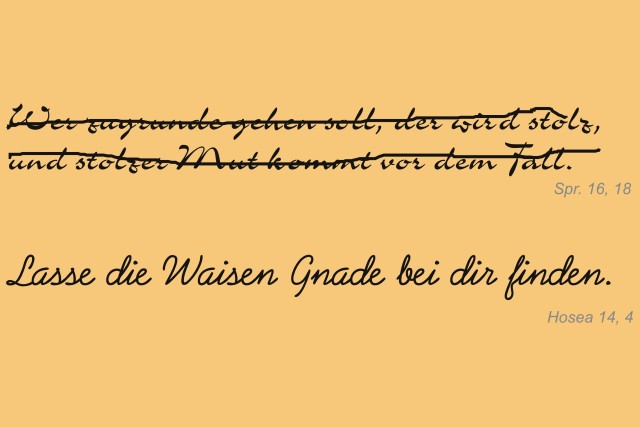 Wer zugrunde gehen soll, der wird stolz,
und stolzer Mut kommt vor dem Fall.
Spr. 16, 18
Lasse die Waisen Gnade bei dir finden.
Hosea 14, 4